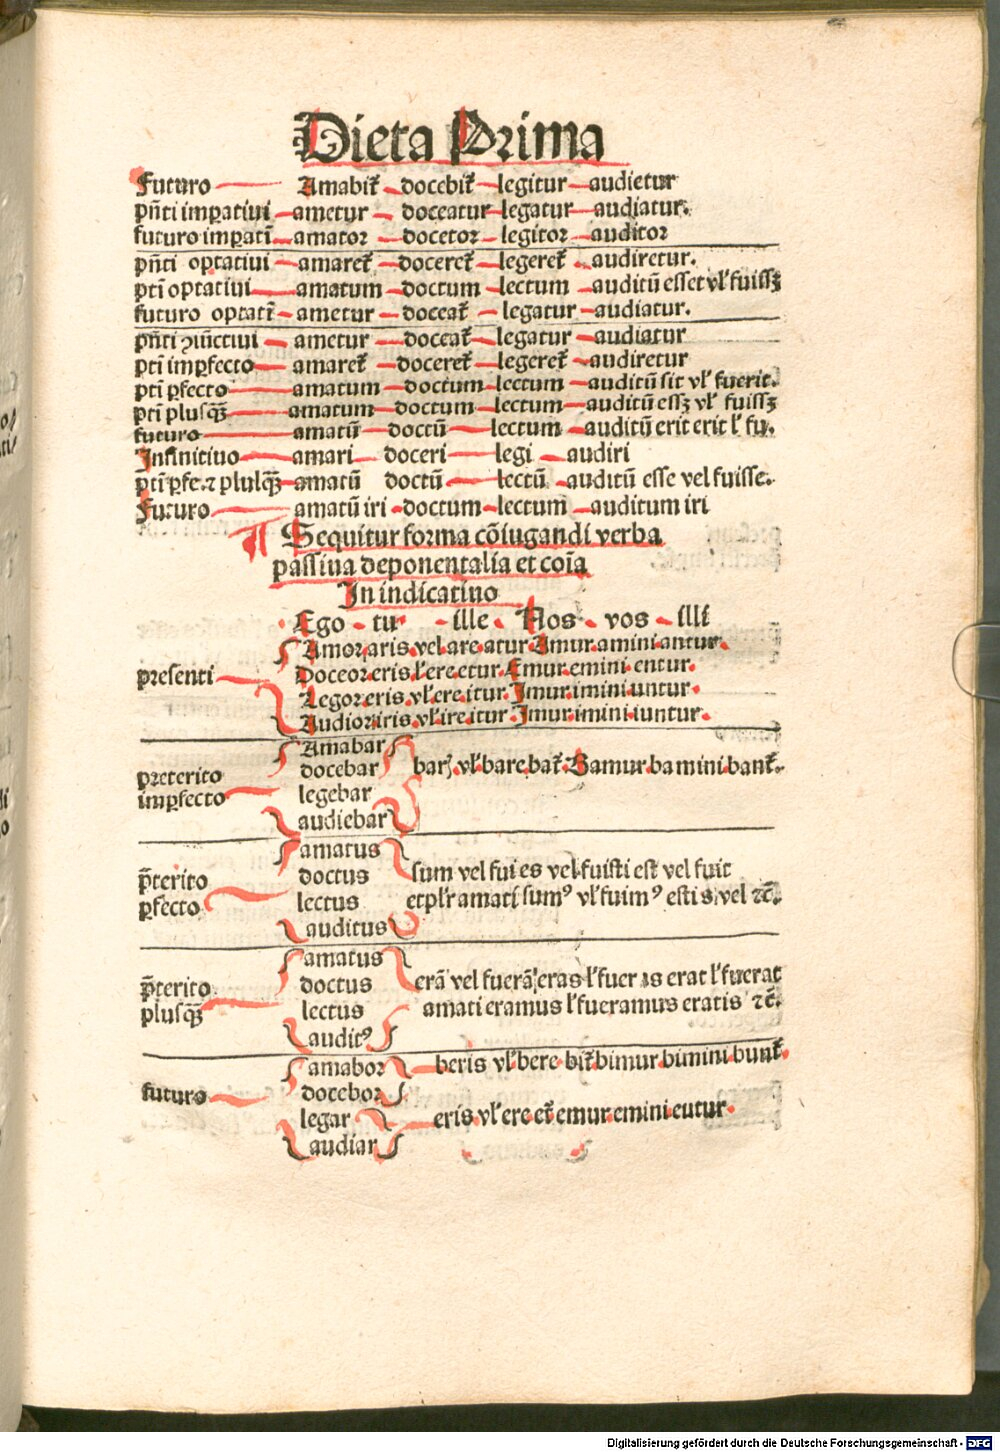 Dieta Prima
Futuro Amabit᷑ docebit᷑ legitur audietur
pñti imꝑatiui ametur doceatur legatur audiatur.
futuro imꝑati᷑ amator docetor legitor auditor
pñti optatiui amaret᷑ doceret᷑ legeret᷑ audiretur.
pti᷑ optatiui amatum doctum lectum auditū esset vl᷑ fuissꝫ
futuro optati᷑ ametur doceat᷑ legatur audiatur.
pñti ꝯiūctiui ametur doceat᷑ legatur audiatur
pti᷑ imꝑfecto amaret᷑ doceret᷑ legeret᷑ audiretur
pti᷑ ꝑfecto amatum doctum lectum auditū sit vl᷑ fuerit.
pti᷑ plusq̄ꝫ amatum doctum lectum auditū essꝫ vl᷑ fuissꝫ
futuro amatū doctū lectum auditū erit erit l᷑ fu.
Infinitiuo amari doceri legi audiri
pti᷑ ꝑfe. ⁊ plusq̄ꝫ amatū doctū lectū auditū esse vel fuisse.
Futuro amatū iri doctum lectum auditum iri
¶ Sequitur forma cōiugandi verba
passiua deponentalia et coīa
In indicatiuo
Ego tu ille Nos vos illi
Amor.aris.vel.are atur.Amur.amini antur.
presenti Doceor.eris.l᷑ ere.etur.Emur.emini entur.
Legor.eris.vl᷑ ere.itur.Imur.imini untur.
Audior.iris.vl᷑ ire.itur.Imur.imini.iuntur.
Amabar
preterito docebar bar᷑. vl᷑ bare.bat᷑.Bamur.bamini bant᷑.
imꝑfecto legebar
audiebar
amatus
p̄terito doctus sum vel fui es vel fuisti est vel fuit
ꝑfecto lectus et plr᷑ amati sumꝰ vl᷑ fuimꝰ estis vel ⁊c̄.
auditus
amatus
p̄terito doctus erā vel fuerā eras l᷑ fueras erat l᷑ fuerat
plusq̄ꝫ lectus amati eramus l᷑ fueramus eratis ⁊c̄.
auditꝰ
amabor beris vl᷑ bere bit᷑ bimur bimini bunt᷑.
futuro docebor
legar eris vl᷑ ere et᷑ emur.emini eutur.
audiar
Digitalisierung gefördert durch die Deutsche Forschungsgemeinschaft - DFG